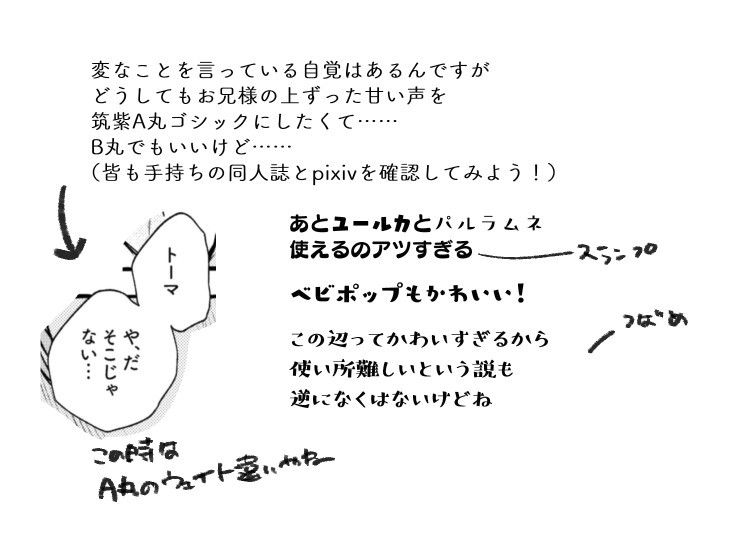 変なことを言っている自覚はあるんですが
どうしてもお兄様の上ずった甘い声を
筑紫A丸ゴシックにしたくて……
B丸でもいいけど……
(皆も手持ちの同人誌とpixivを確認してみよう！)
トーマ
や、だ
そこじゃ
ない…
この時は
A丸のウェイト重いやね
あとユールカとパルラムネ
使えるのアツすぎる
スランプ
ベビポップもかわいい！
この辺ってかわいすぎるから
使い所難しいという説も
逆になくはないけどね
つばめ